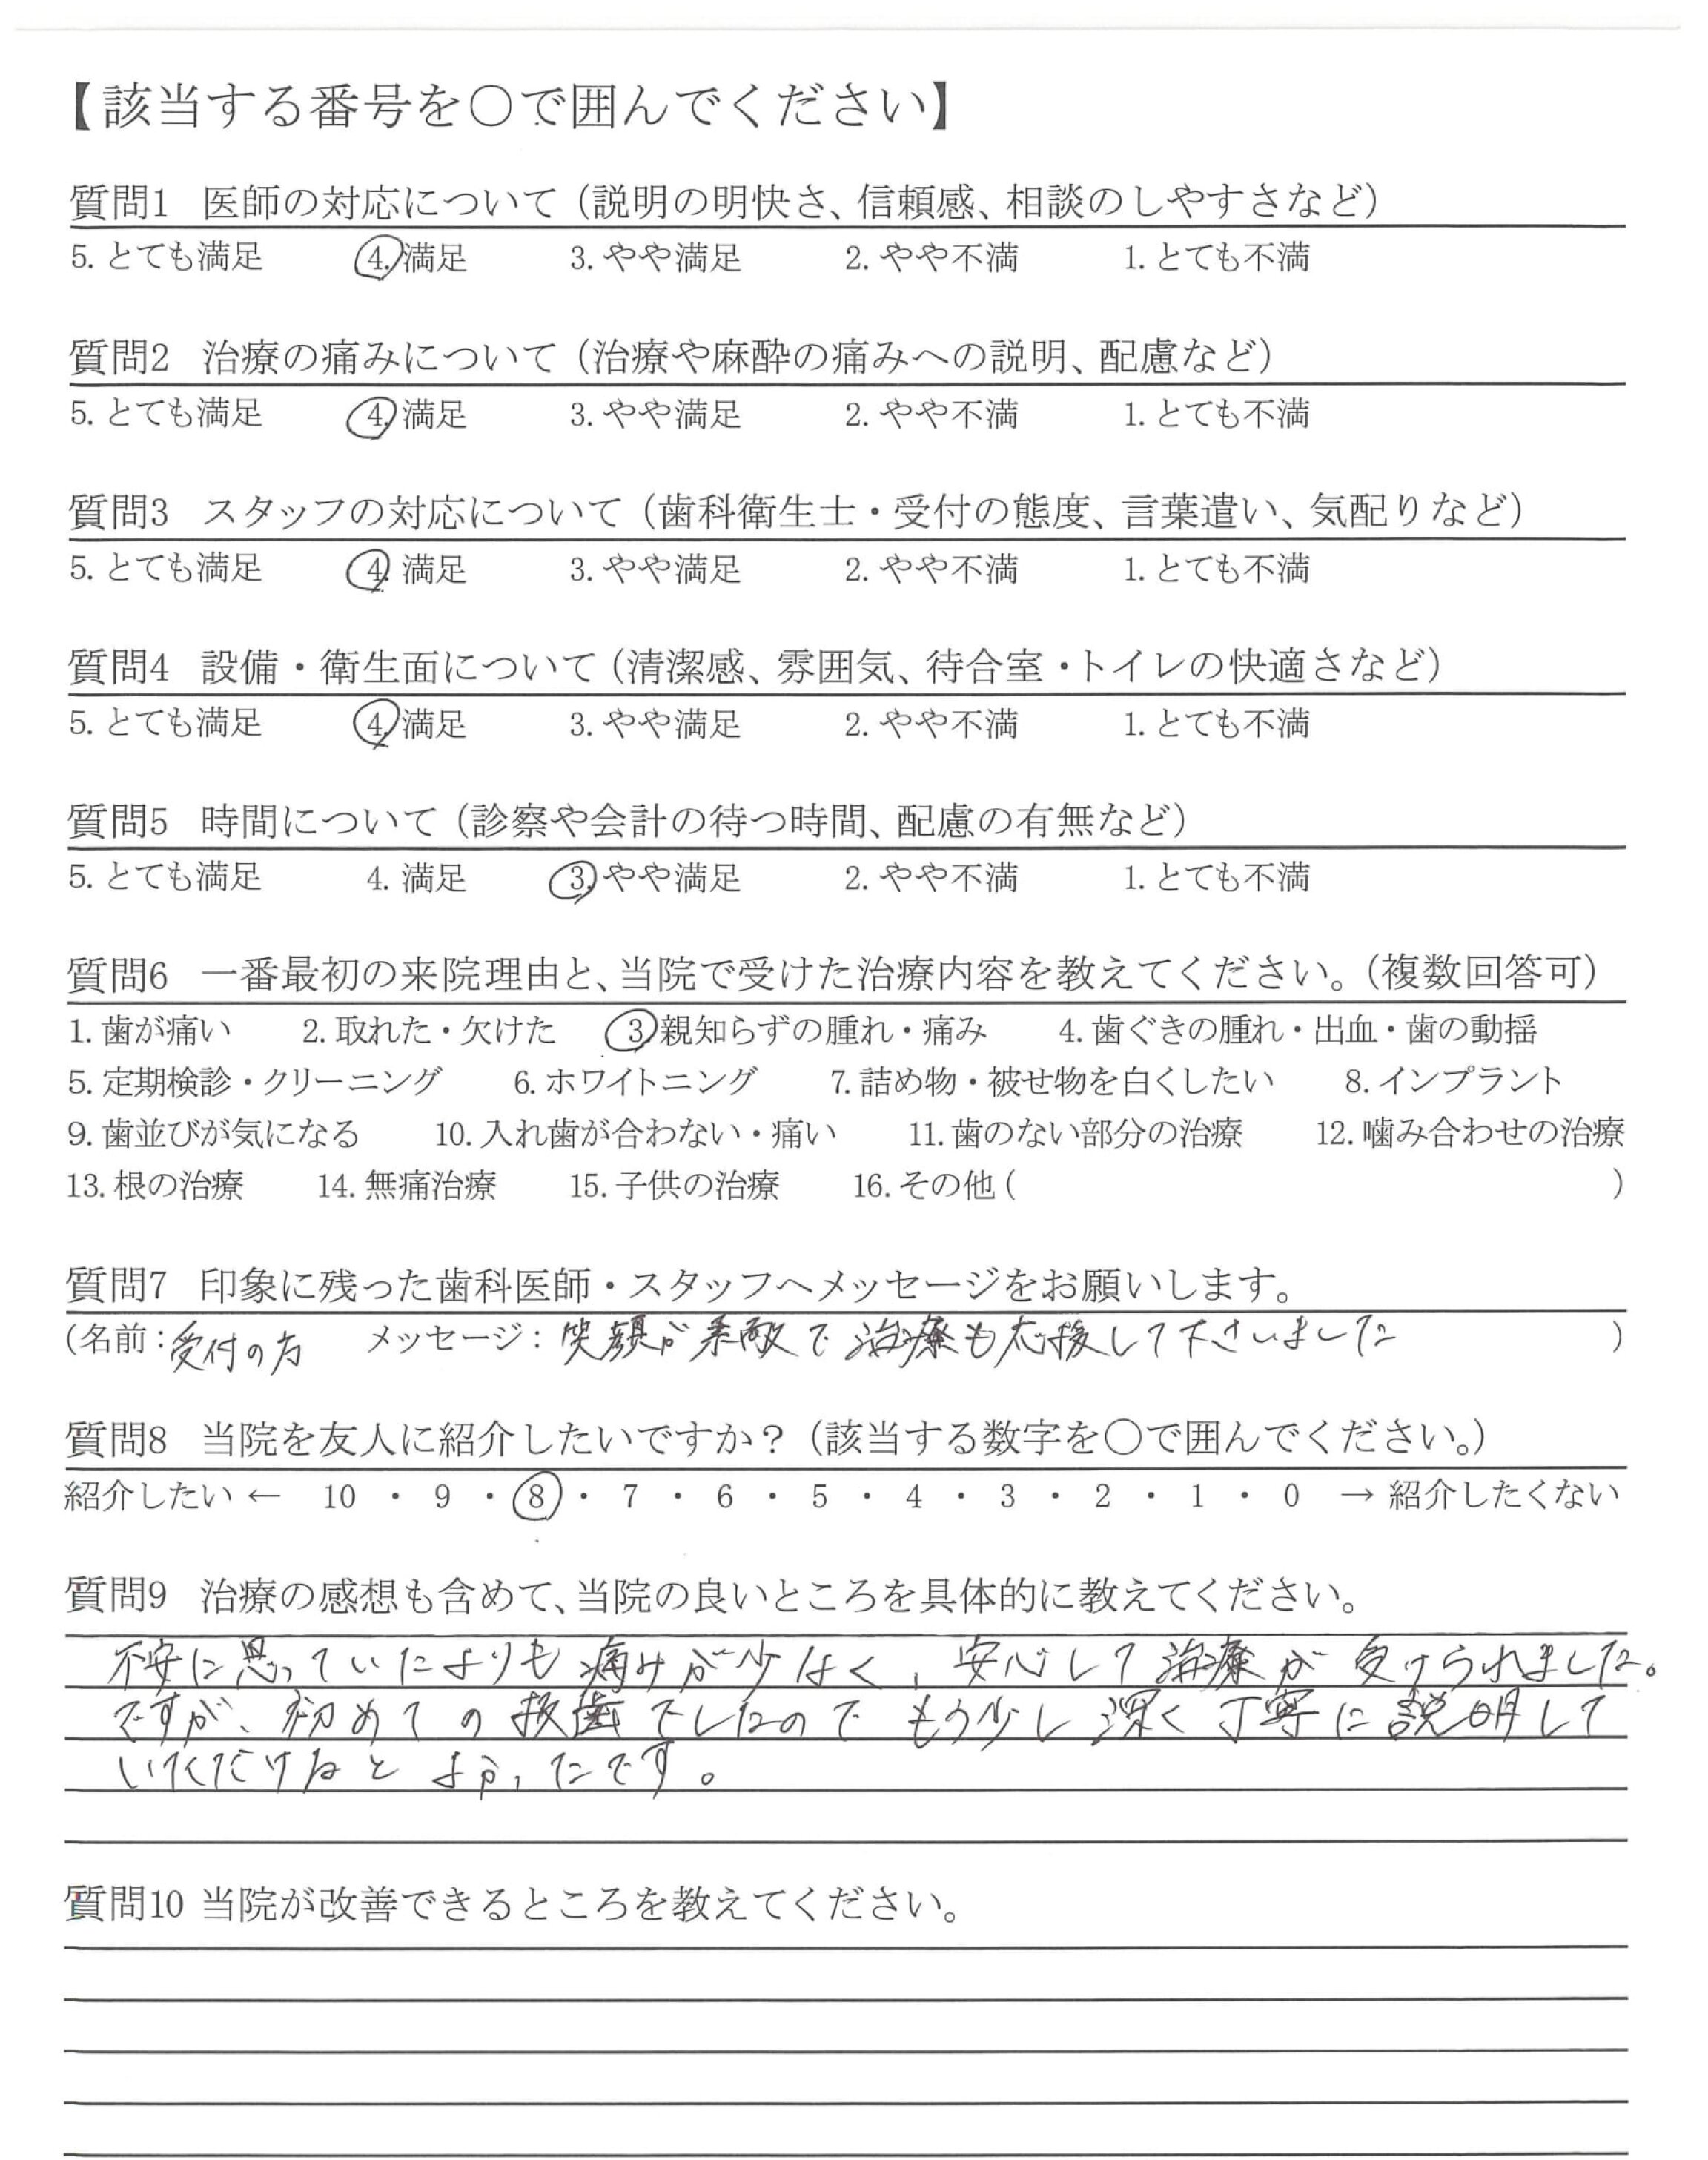 【該当する番号を○で囲んでください】
質問1 医師の対応について（説明の明快さ、信頼感、相談のしやすさなど）
5. とても満足 4. 満足 3. やや満足 2. やや不満 1. とても不満
質問2 治療の痛みについて（治療や麻酔の痛みへの説明、配慮など）
5. とても満足 4. 満足 3. やや満足 2. やや不満 1. とても不満
質問3 スタッフの対応について（歯科衛生士・受付の態度、言葉遣い、気配りなど）
5. とても満足 4. 満足 3. やや満足 2. やや不満 1. とても不満
質問4 設備・衛生面について（清潔感、雰囲気、待合室・トイレの快適さなど）
5. とても満足 4. 満足 3. やや満足 2. やや不満 1. とても不満
質問5 時間について（診察や会計の待つ時間、配慮の有無など）
5. とても満足 4. 満足 3. やや満足 2. やや不満 1. とても不満
質問6 一番最初の来院理由と、当院で受けた治療内容を教えてください。（複数回答可）
1. 歯が痛い 2. 取れた・欠けた 3. 親知らずの腫れ・痛み 4. 歯ぐきの腫れ・出血・歯の動揺
5. 定期検診・クリーニング 6. ホワイトニング 7. 詰め物・被せ物を白くしたい 8. インプラント
9. 歯並びが気になる 10. 入れ歯が合わない・痛い 11. 歯のない部分の治療 12. 噛み合わせの治療
13. 根の治療 14. 無痛治療 15. 子供の治療 16. その他（ ）
質問7 印象に残った歯科医師・スタッフへメッセージをお願いします。
（名前：受付の方 メッセージ：笑顔が素敵で治療も応援して下さいました ）
質問8 当院を友人に紹介したいですか？（該当する数字を○で囲んでください。）
紹介したい ← 10 ・ 9 ・ 8 ・ 7 ・ 6 ・ 5 ・ 4 ・ 3 ・ 2 ・ 1 ・ 0 → 紹介したくない
質問9 治療の感想も含めて、当院の良いところを具体的に教えてください。
不安に思っていたよりも痛みが少なく、安心して治療が受けられました。
ですが、初めての抜歯でしたので もう少し深く丁寧に説明して
いただけるとよかったです。
質問10 当院が改善できるところを教えてください。